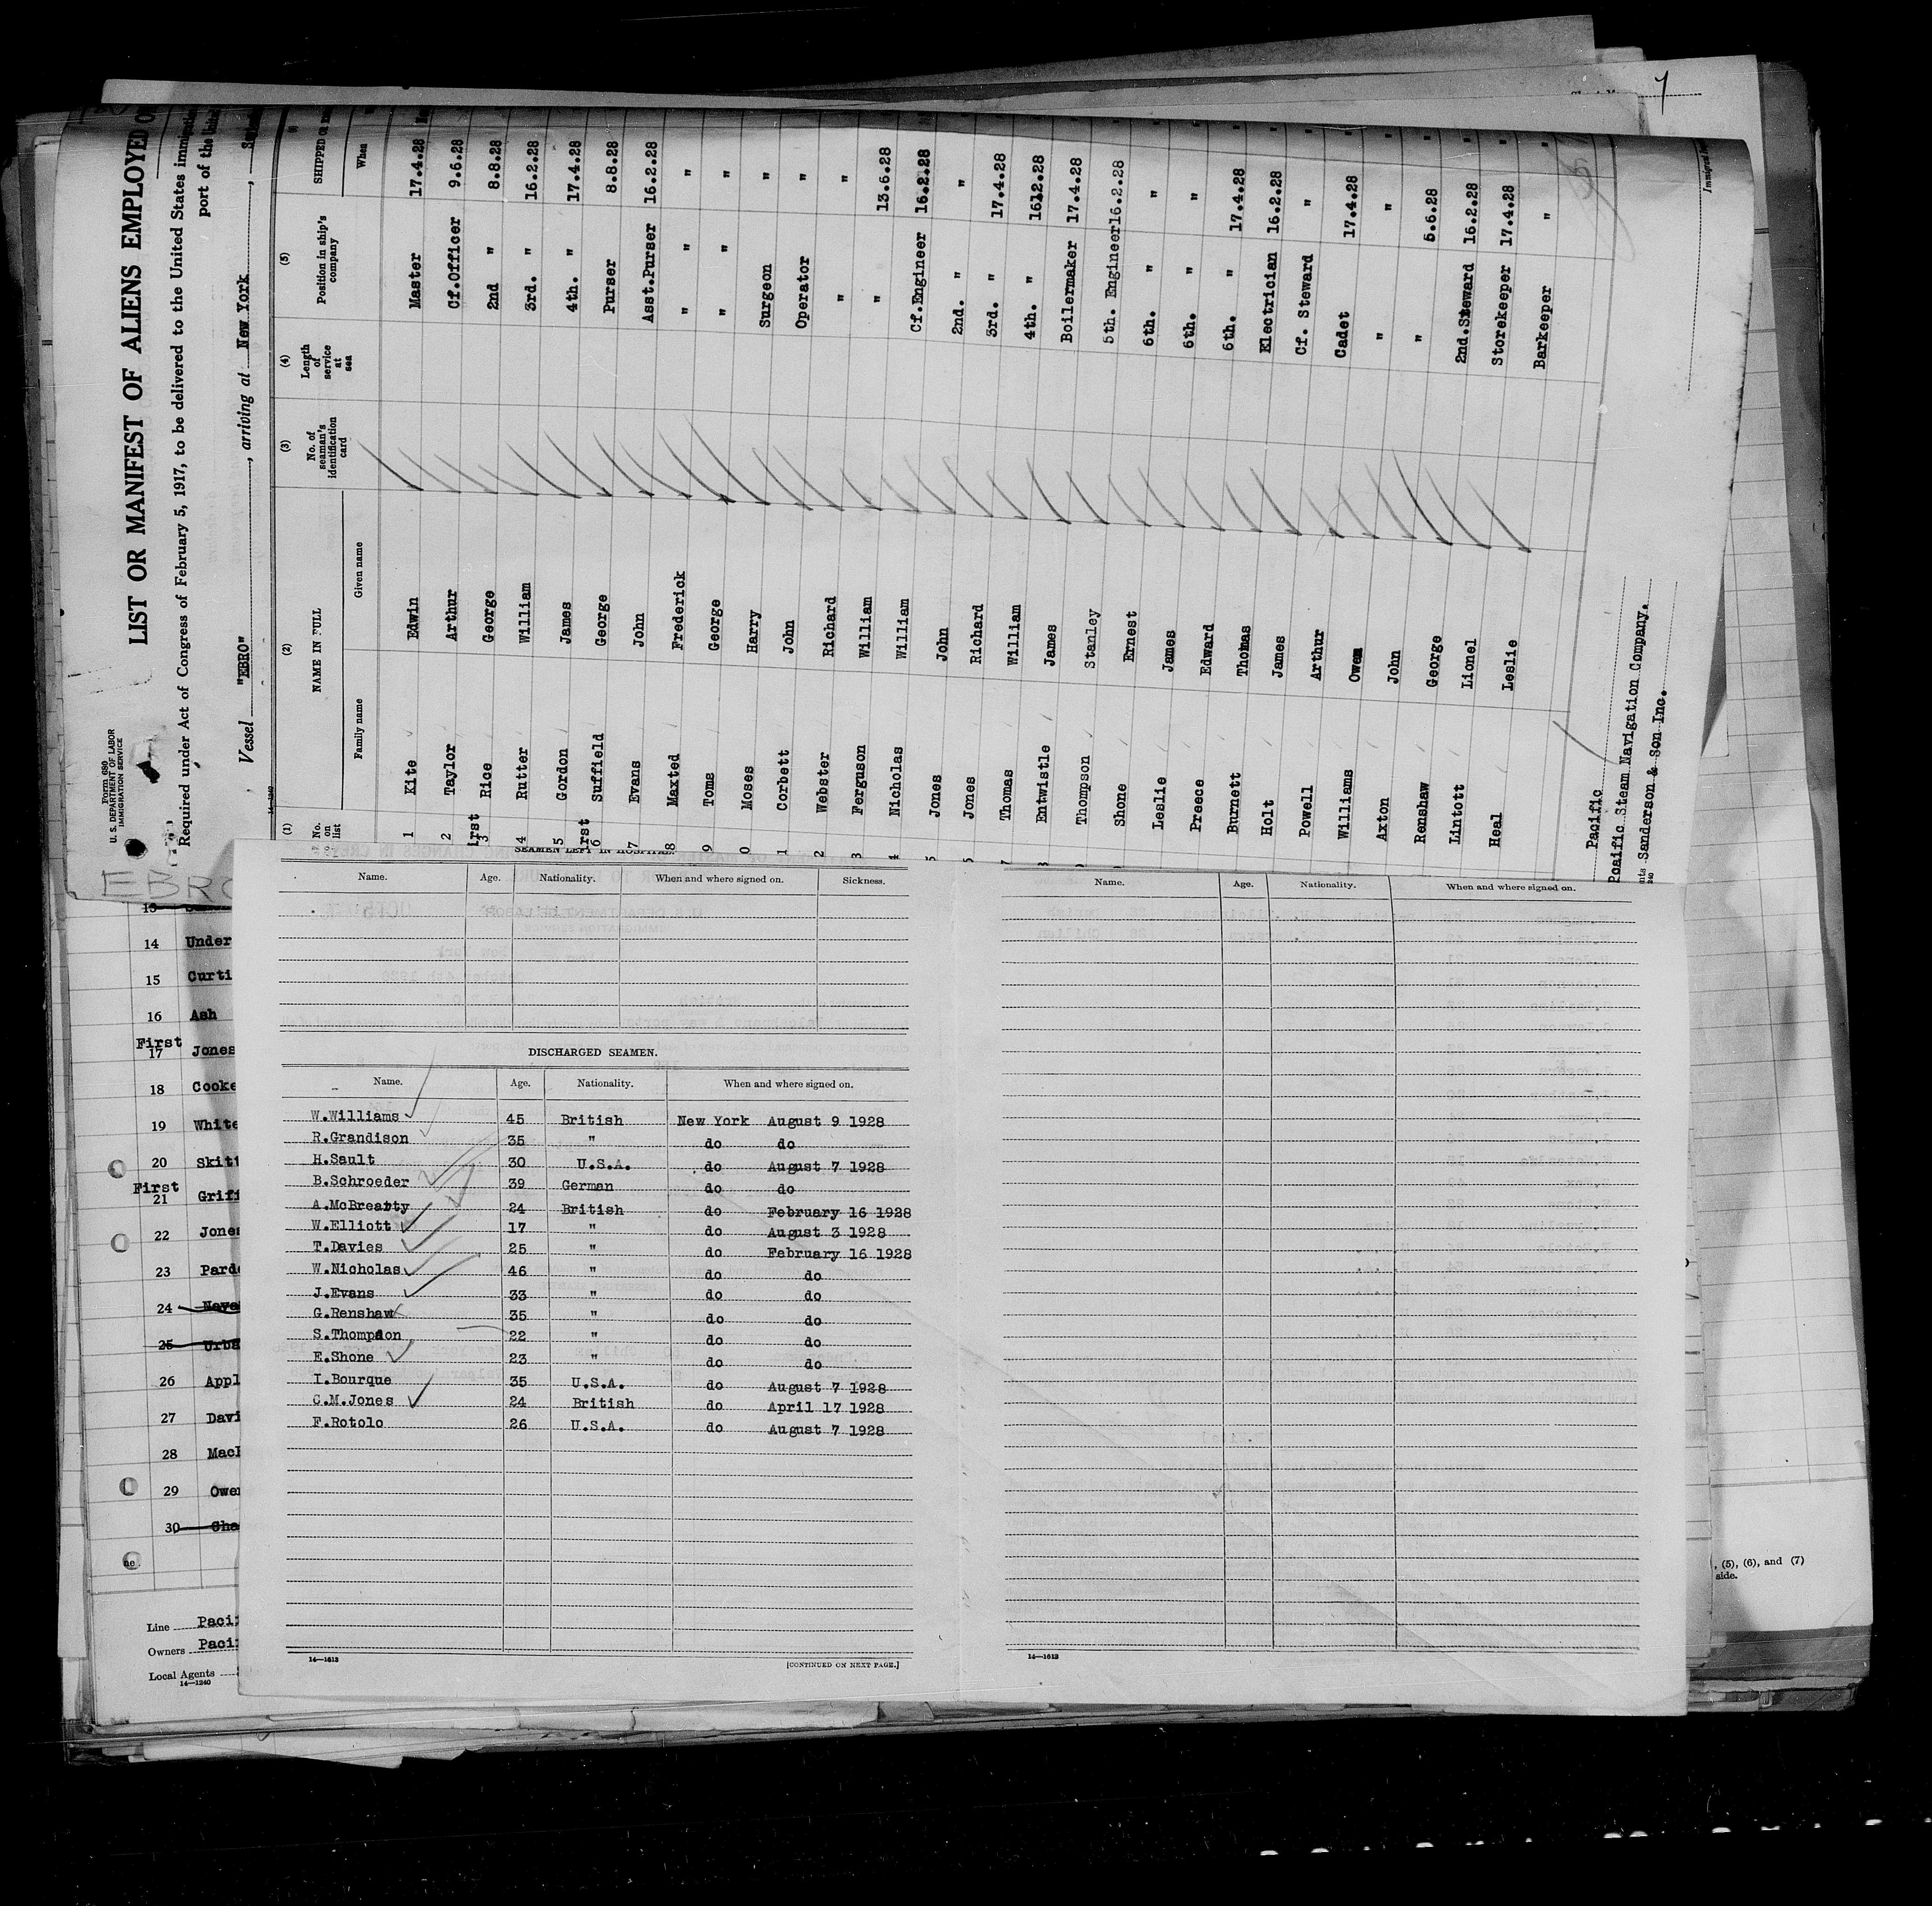 7
Form 680
U. S. DEPARTMENT OF LABOR
IMMIGRATION SERVICE
LIST OR MANIFEST OF ALIENS EMPLOYED O
Required under Act of Congress of February 5, 1917, to be delivered to the United States immigratio
port of the United
Vessel "EBRO", arriving at New York
14-1240
(1) (2) (3) (4) (5)
No. on list NAME IN FULL No. of seaman's identification card Length of service at sea Position in ship's company SHIPPED OR
Family name Given name When
1 Kite Edwin Master 17.4.28
2 Taylor Arthur Cf.Officer 9.6.28
irst
3 Rice George 2nd " 8.8.28
4 Rutter William 3rd. " 16.2.28
5 Gordon James 4th. " 17.4.28
irst
6 Suffield George Purser 8.8.28
7 Evans John Asst.Purser 16.2.28
8 Maxted Frederick " " "
9 Toms George " " "
0 Moses Harry Surgeon "
1 Corbett John Operator "
2 Webster Richard " "
3 Ferguson William " 13.6.28
4 Nicholas William Cf.Engineer 16.2.28
5 Jones John 2nd. " "
5 Jones Richard 3rd. " 17.4.28
7 Thomas William 4th. " 1612.28
Entwistle James Boilermaker 17.4.28
Thompson Stanley 5th. Engineer16.2.28
Shone Ernest 6th. " "
Leslie James 6th. " "
Preece Edward 6th. " 17.4.28
Burnett Thomas Electrician 16.2.28
Holt James Cf. Steward "
Powell Arthur Cadet 17.4.28
Williams Owen " "
Axton John " 5.6.28
Renshaw George 2nd.Steward 16.2.28
Lintott Lionel Storekeeper 17.4.28
Heal Leslie Barkeeper "
Pacific
Pcaific Steam Navigation Company.
nts Sanderson & Son Inc.
240
EBRO
13
14 Under
15 Curti
16 Ash
First
17 Jones
18 Cooke
19 White
20 Skit
First
21 Grif
22 Jone
23 Pard
24 Nava
25 Urba
26 Appl
27 Davi
28 Mac
29 Owe
30 Cha
ne.
Line Paci
Owners Paci
Local Agents
14-1240
SEAMEN LEFT IN HOSPITAL
Name. Age. Nationality. When and where signed on. Sickness.
DISCHARGED SEAMEN.
Name. Age. Nationality. When and where signed on.
W.Williams 45 British New York August 9 1928
R.Grandison 35 " do do
H.Sault 30 U.S.A. do August 7 1928
B.Schroeder 39 German do do
A.McBrearty 24 British do February 16 1928
W.Elliott 17 " do August 3 1928
T.Davies 25 " do February 16 1928
W.Nicholas 46 " do do
J.Evans 33 " do do
G.Renshaw 35 " do do
S.Thompson 22 " do do
E.Shone 23 " do do
I.Bourque 35 U.S.A. do August 7 1928
C.M.Jones 24 British do April 17 1928
F.Rotolo 26 U.S.A. do August 7 1928
14—1613
[CONTINUED ON NEXT PAGE.]
Name. Age. Nationality. When and where signed on.
14—1613
, (5), (6), and (7)
side.